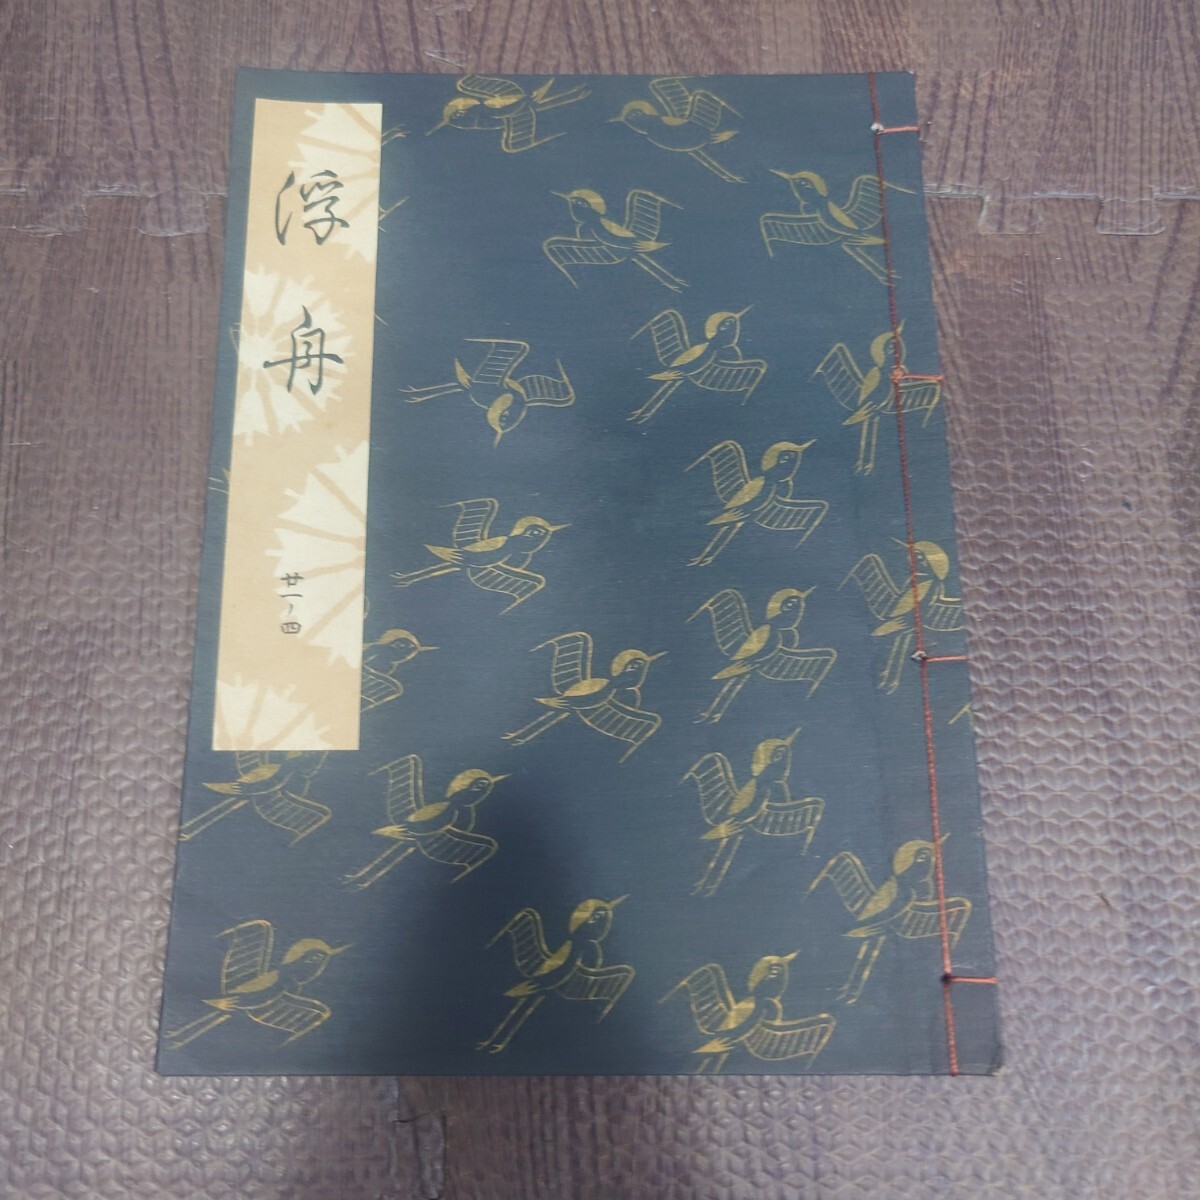 浮舟
廿一ノ四